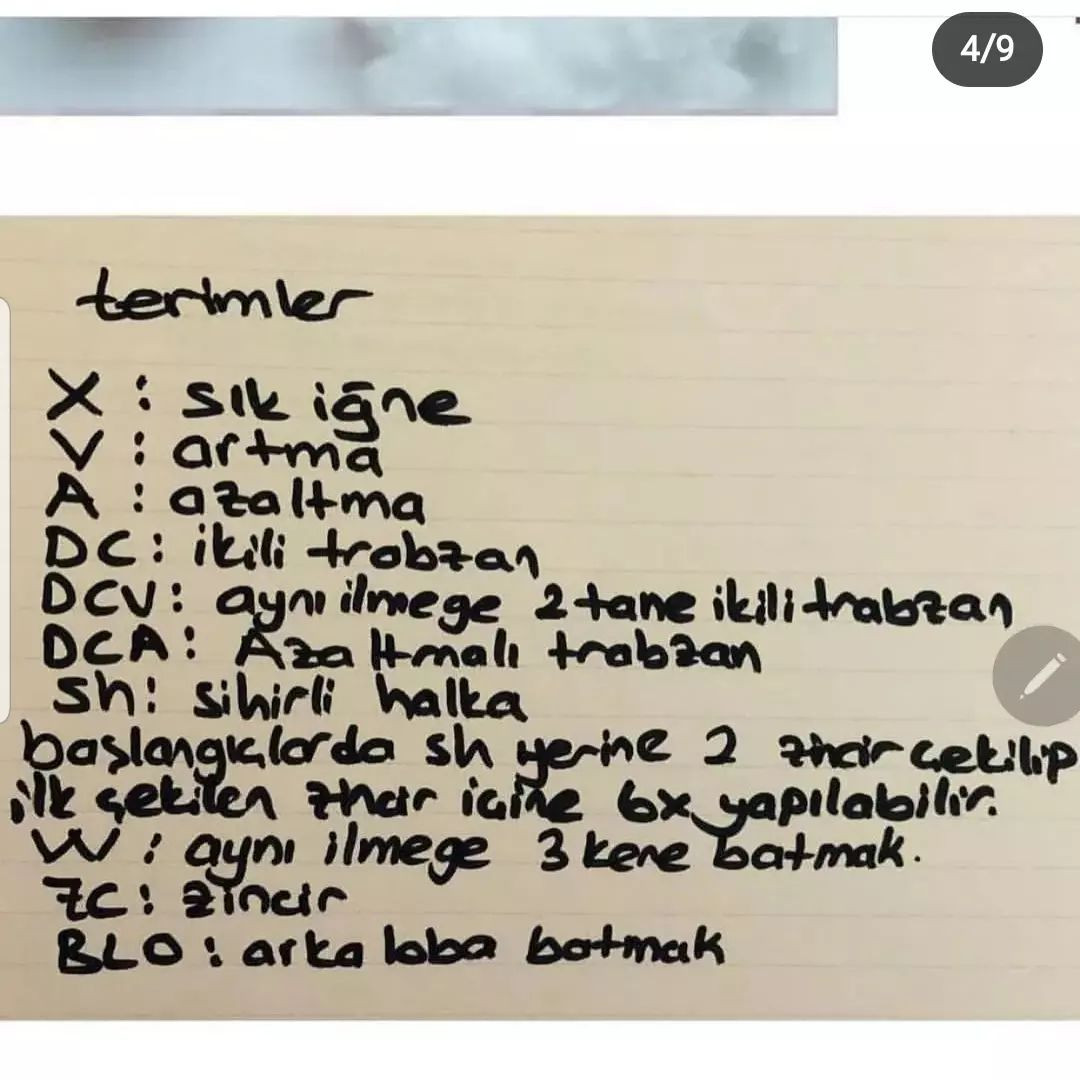 4/9
terimler
X : sık iğne
V : artma
A : azaltma
DC : ikili trobzan
DCV : aynı ilmege 2 tane ikili trabzan
DCA : Azaltmalı trabzan
Sh : sihirli halka
başlangıçlarda sh yerine 2 zincir çekilip
ilk çekilen zincir içine 6x yapılabilir.
W : aynı ilmege 3 kere batmak.
ZC : zincir
BLO : arka loba batmak